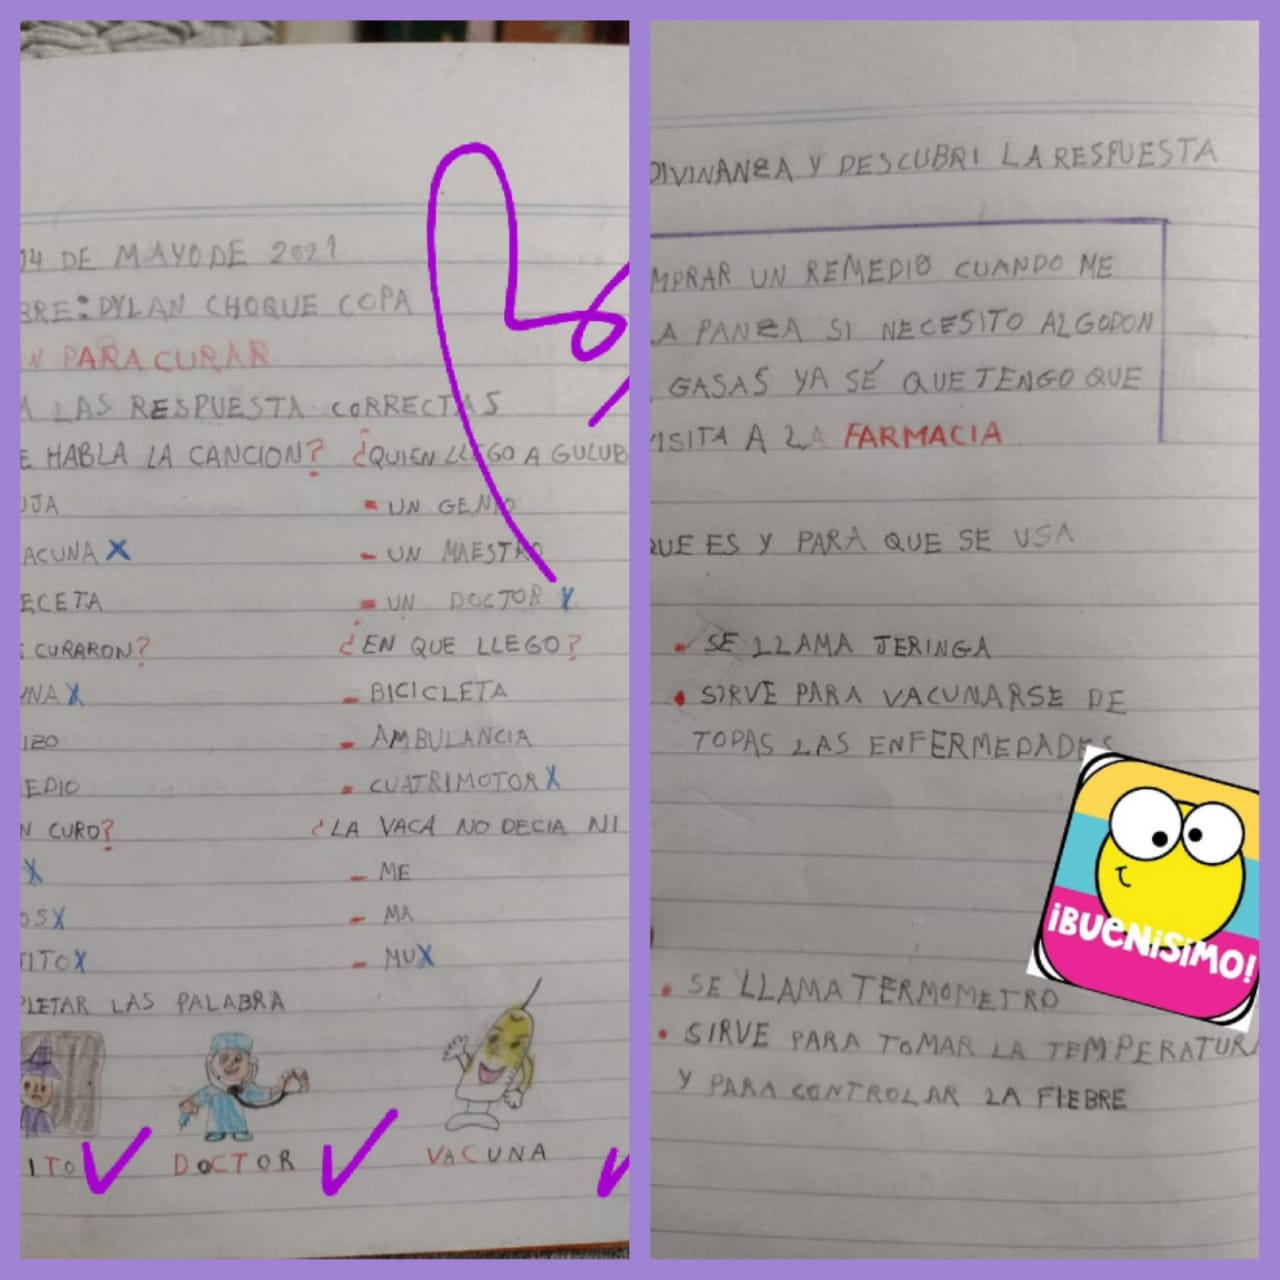 14 DE MAYO DE 2021
BRE: DYLAN CHOQUE COPA
N PARA CURAR
A LAS RESPUESTA CORRECTAS
E HABLA LA CANCION? ¿QUIEN LLEGO A GULUB
UJA - UN GENIO
ACUNA X - UN MAESTRO
ECETA - UN DOCTOR X
CURARON? ¿EN QUE LLEGO?
UNA X - BICICLETA
IZO - AMBULANCIA
EDIO - CUATRIMOTOR X
N CURO? ¿LA VACA NO DECIA NI
X - ME
OS X - MA
TITO X - MU X
PLETAR LAS PALABRA
ITO DOCTOR VACUNA
DIVINANZA Y DESCUBRI LA RESPUESTA
MPRAR UN REMEDIO CUANDO ME
LA PANZA SI NECESITO ALGODON
GASAS YA SÉ QUE TENGO QUE
VISITA A LA FARMACIA
QUE ES Y PARA QUE SE USA
• SE LLAMA JERINGA
• SIRVE PARA VACUNARSE DE
TODAS LAS ENFERMEDADES
¡BUENÍSIMO!
• SE LLAMA TERMOMETRO
• SIRVE PARA TOMAR LA TEMPERATURA
Y PARA CONTROLAR LA FIEBRE